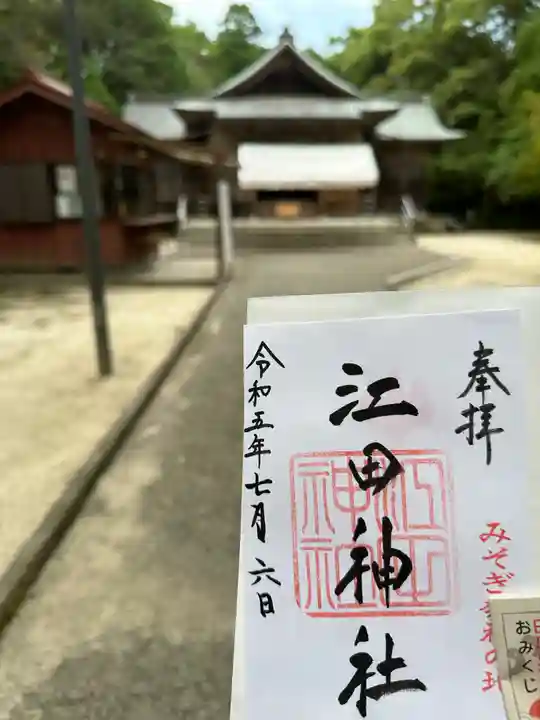 奉拝
みそぎ
江田神社
江田神社
令和五年七月六日
おみくじ